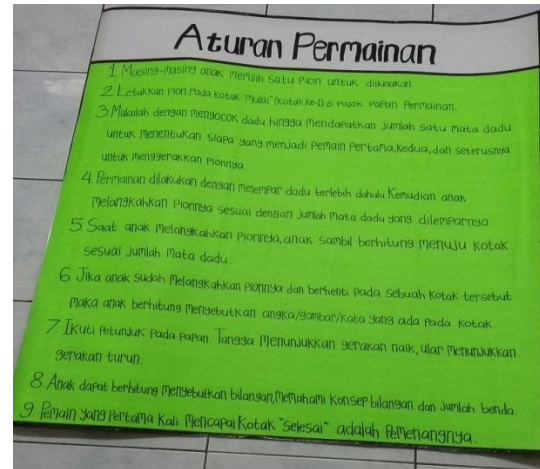 Aturan Permainan
1. Masing-masing anak memilih satu pion untuk digunakan.
2. Letakkan pion pada kotak "mulai" (kotak ke-1) di pojok papan permainan.
3. Mulailah dengan mengocok dadu hingga mendapatkan jumlah satu mata dadu
untuk menentukan siapa yang menjadi pemain pertama, kedua, dan seterusnya
untuk menggerakkan pionnya.
4. Permainan dilakukan dengan melempar dadu terlebih dahulu. Kemudian anak
melangkahkan pionnya sesuai dengan jumlah mata dadu yang dilemparnya.
5. Saat anak melangkahkan pionnya, anak sambil berhitung menuju kotak
sesuai jumlah mata dadu.
6. Jika anak sudah melangkahkan pionnya dan berhenti pada sebuah kotak tersebut
maka anak berhitung menyebutkan angka/gambar/kata yang ada pada kotak
7. Ikuti petunjuk pada papan. Tangga menunjukkan gerakan naik, ular menunjukkan
gerakan turun.
8. Anak dapat berhitung menyebutkan bilangan, memahami konsep bilangan dan jumlah benda.
9 Pemain yang pertama kali mencapai kotak "selesai" adalah pemenangnya.